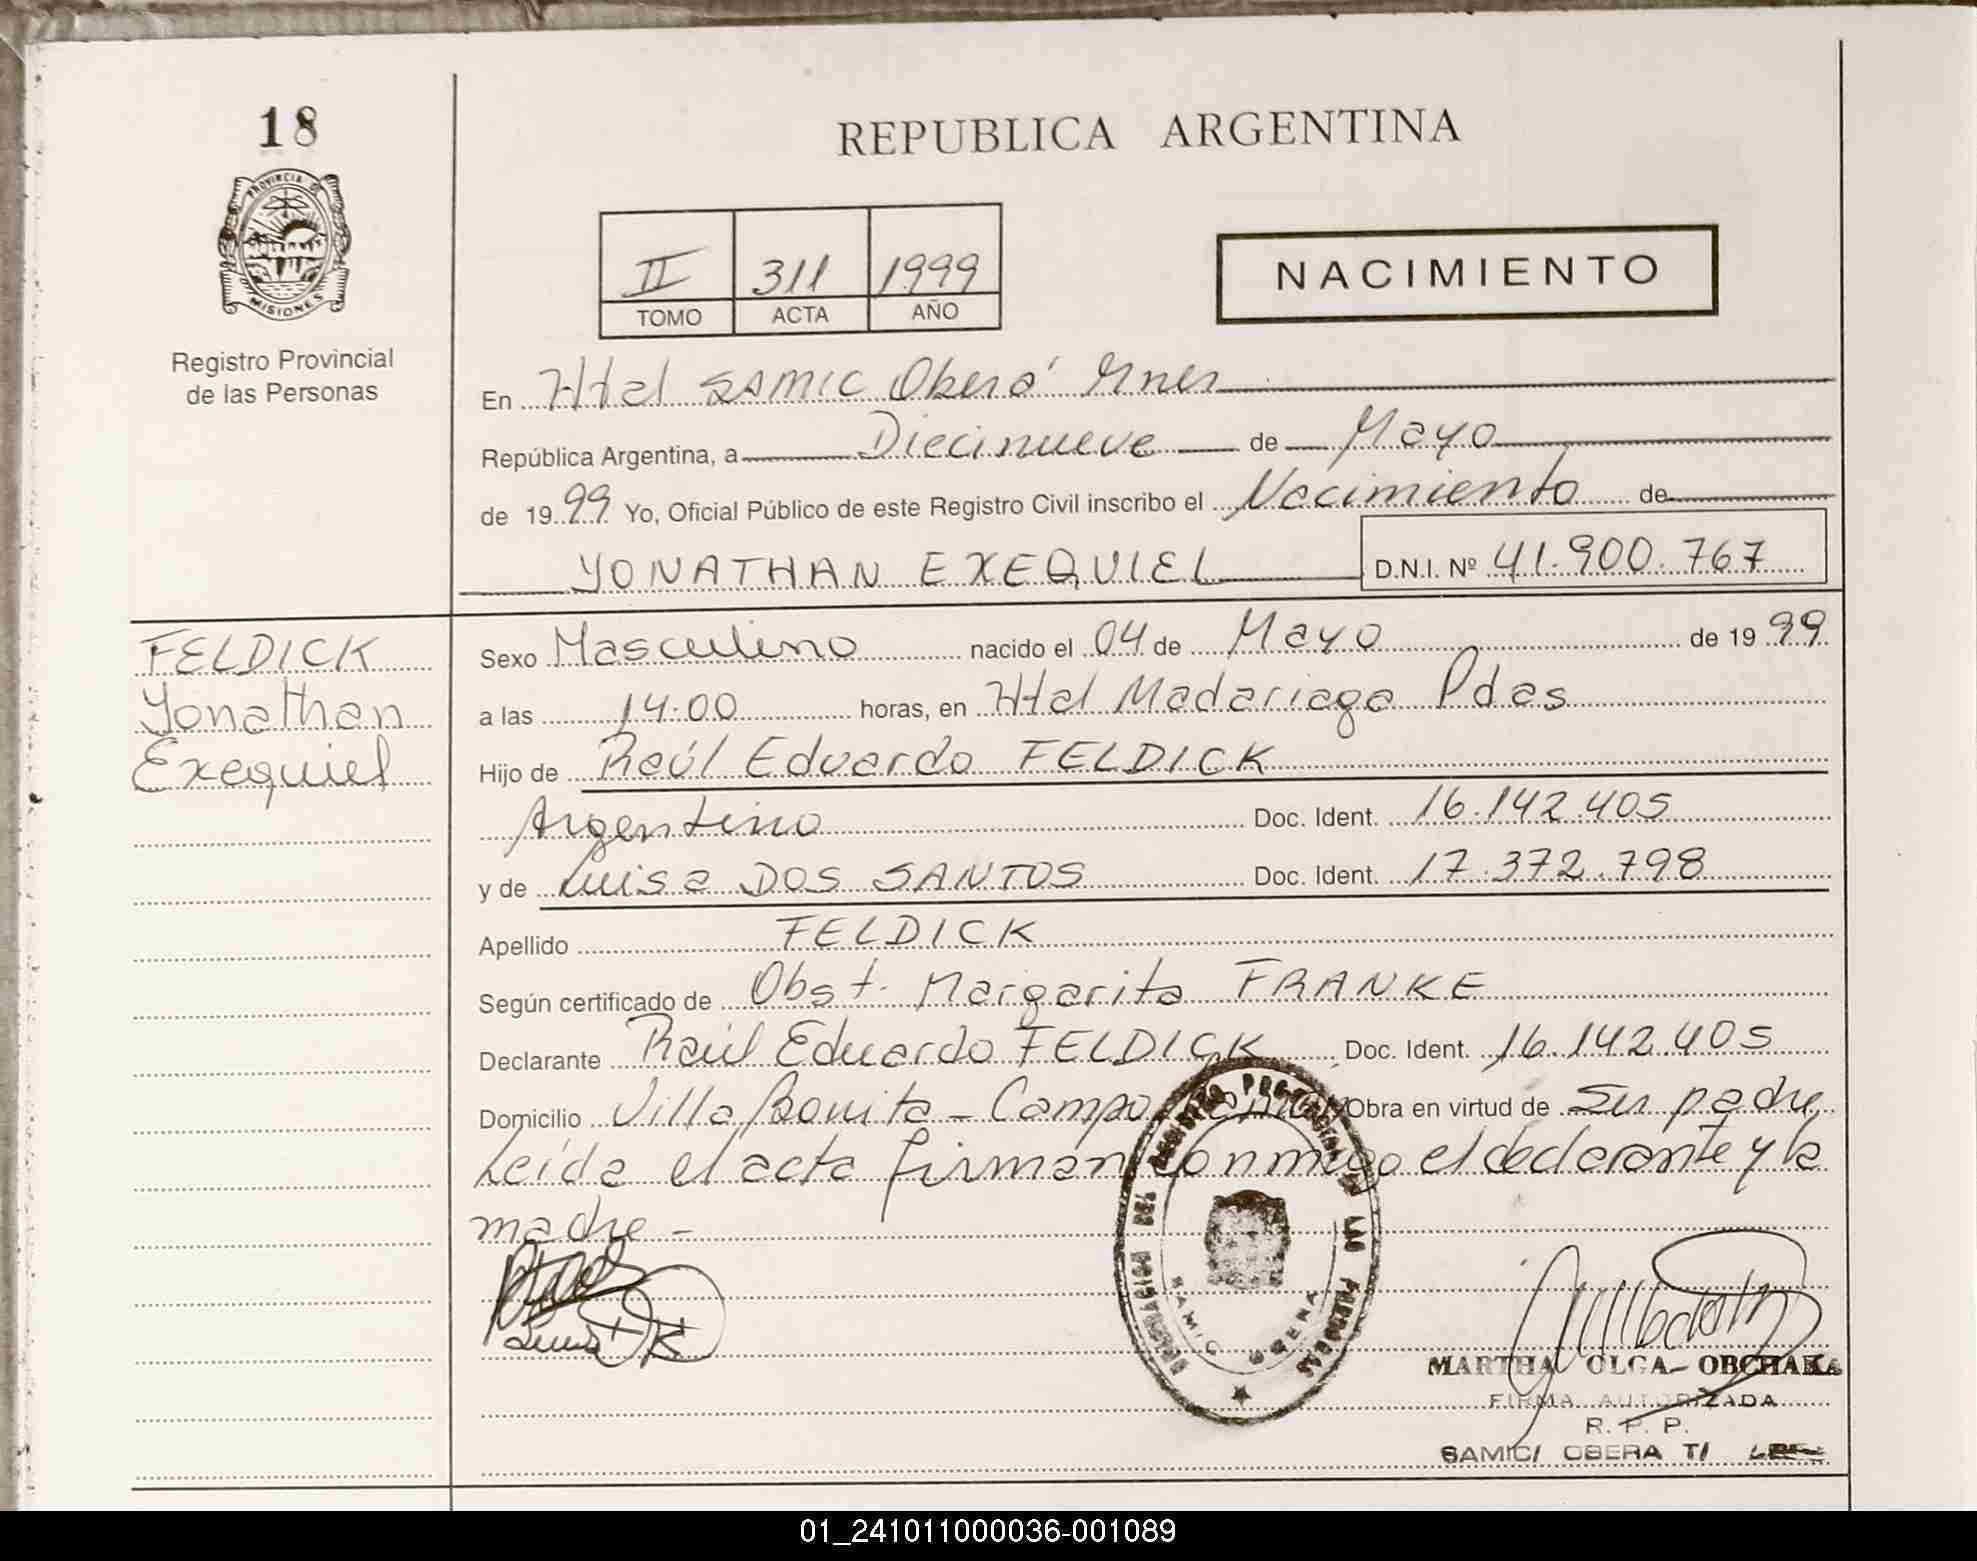 18
PROVINCIA DE
MISIONES
Registro Provincial
de las Personas
REPUBLICA ARGENTINA
II 311 1999
TOMO ACTA AÑO
NACIMIENTO
En Htal SAMIC Oberá Mnes
República Argentina, a Diecinueve de Mayo
de 1999 Yo, Oficial Público de este Registro Civil inscribo el Nacimiento de
YONATHAN EXEQUIEL D.N.I. Nº 41.900.767
FELDICK
Yonathan
Exequiel
Sexo Masculino nacido el 04 de Mayo de 1999
a las 14.00 horas, en Htal Madariaga Pdas
Hijo de Raúl Eduardo FELDICK
Argentino Doc. Ident. 16.142.405
y de Luisa DOS SANTOS Doc. Ident. 17.372.798
Apellido FELDICK
Según certificado de Obst. Margarita FRANKE
Declarante Raúl Eduardo FELDICK Doc. Ident. 16.142.405
Domicilio Villa Bonita - Campo Obra en virtud de su padre
Leída el acta firman conmigo el declarante y la
madre -
DELEGACION DEL REGISTRO PROVINCIAL DE LAS PERSONAS
SAMIC OBERA
MARTHA OLGA OBCHAKA
FIRMA AUTORIZADA
R. P. P.
SAMIC/ OBERA T/
01_241011000036-001089